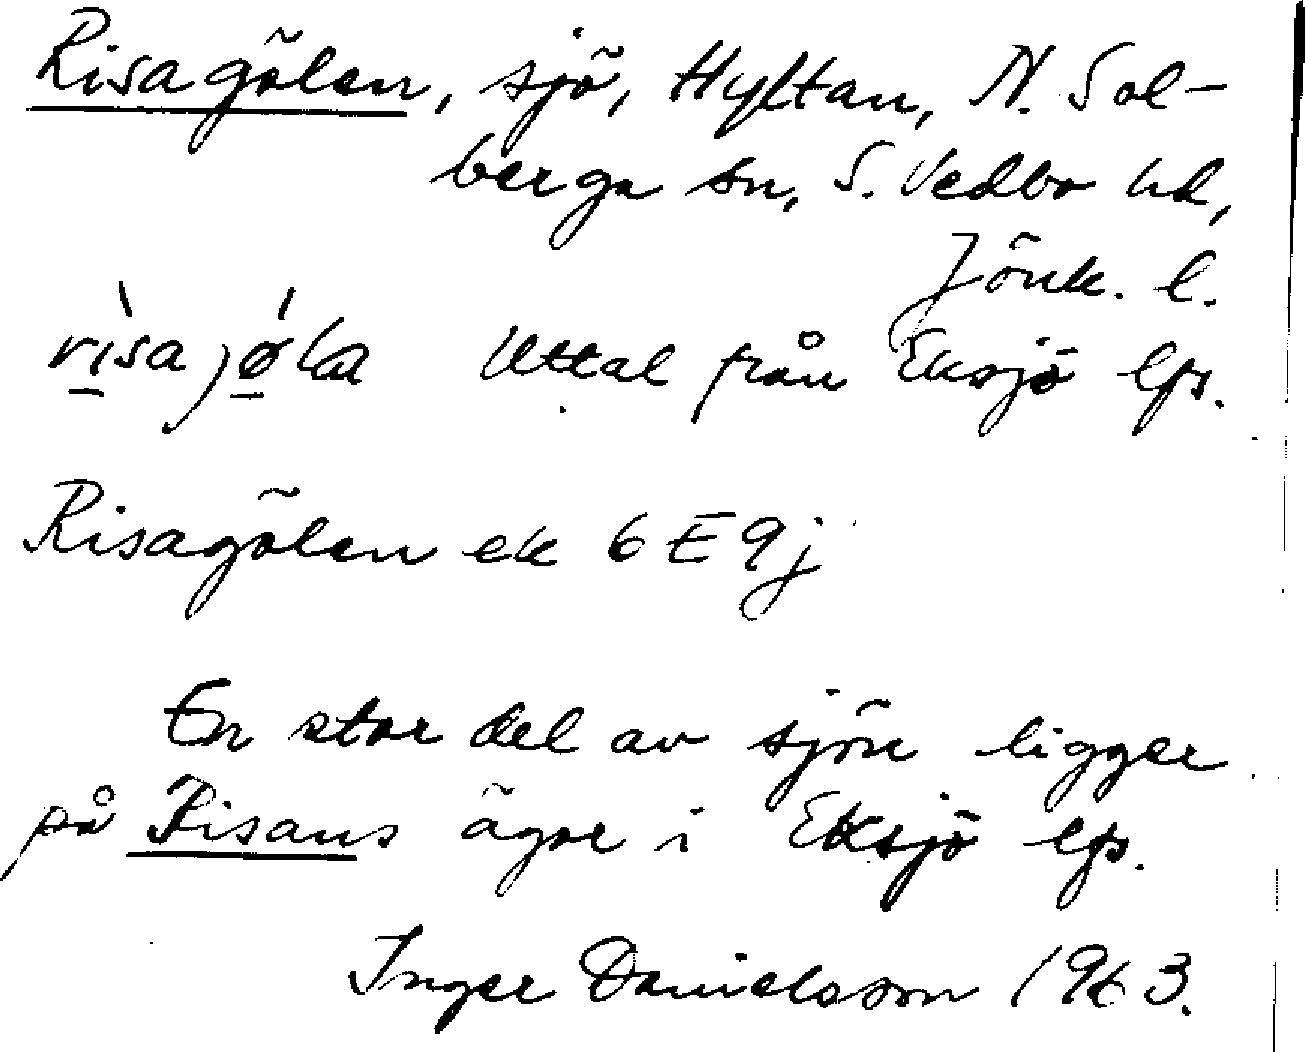 Risagölen, sjö, Hyltan, N. Sol-
berga sn, S. Vedbo hd,
Jönk. l.
rìsajǿla Uttal från Eksjö lfs.
Risagölen ek 6E9j
En stor del av sjön ligger
på Risans ägor i Eksjö lfs.
Inger Danielsson 1963.